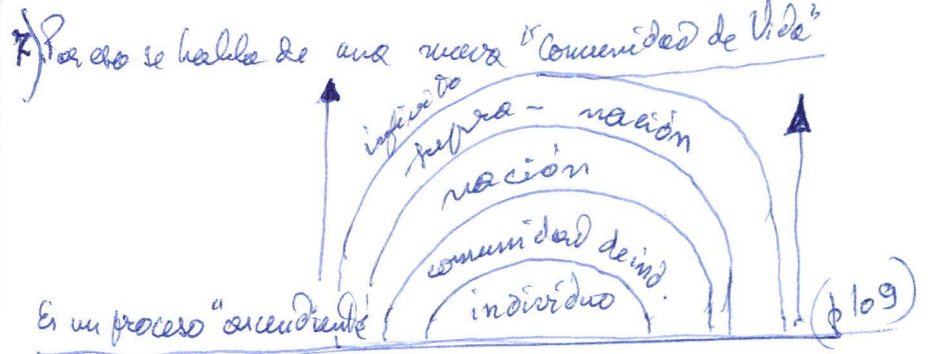 7) Por eso se habla de una nueva "Comunidad de Vida"
infinito
supra-nación
nación
comunidad de ind.
individuo
Es un proceso "ascendiente"
(p 109)